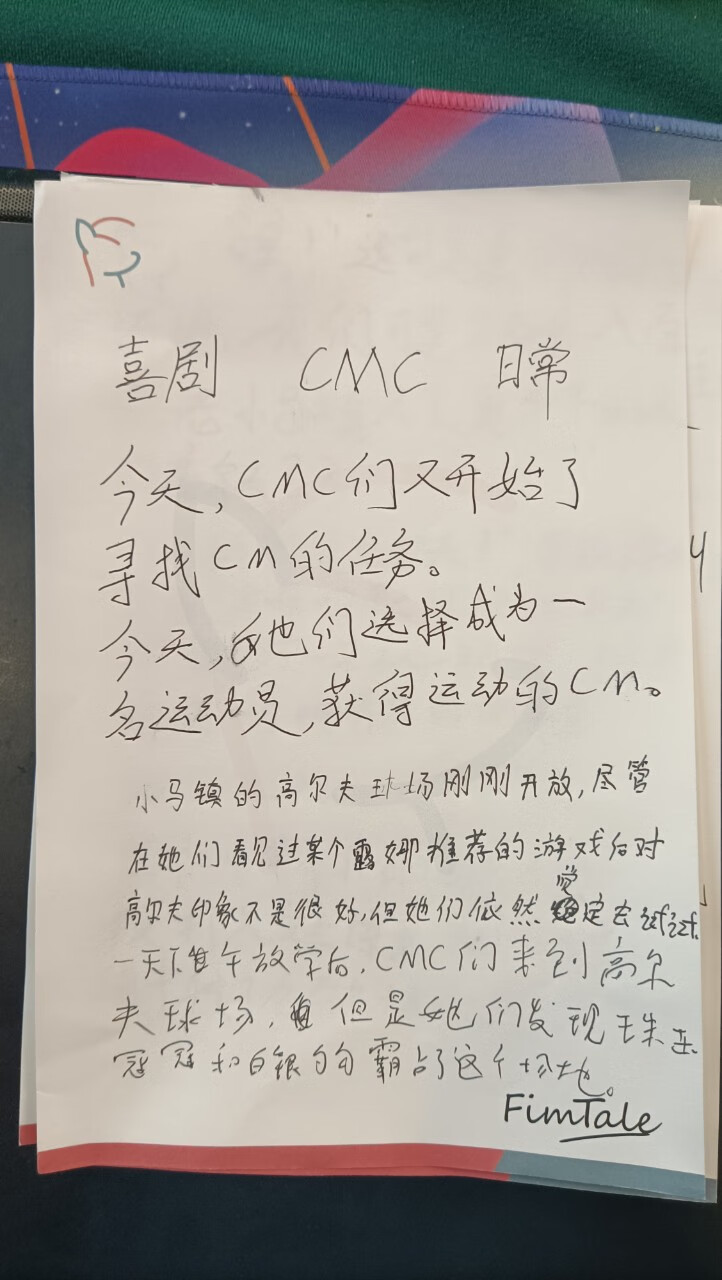 喜剧 CMC 日常
今天,CMC们又开始了
寻找CM的任务。
今天,她们选择成为一
名运动员,获得运动的CM。
小马镇的高尔夫球场刚刚开放,尽管
在她们看见过某个露娜推荐的游戏后对
高尔夫印象不是很好,但她们依然决定去试试。
一天下午放学后,CMC们来到高尔
夫球场,但是她们发现珠玉
冠冠和白银勺勺霸占了这个场地。
FimTale